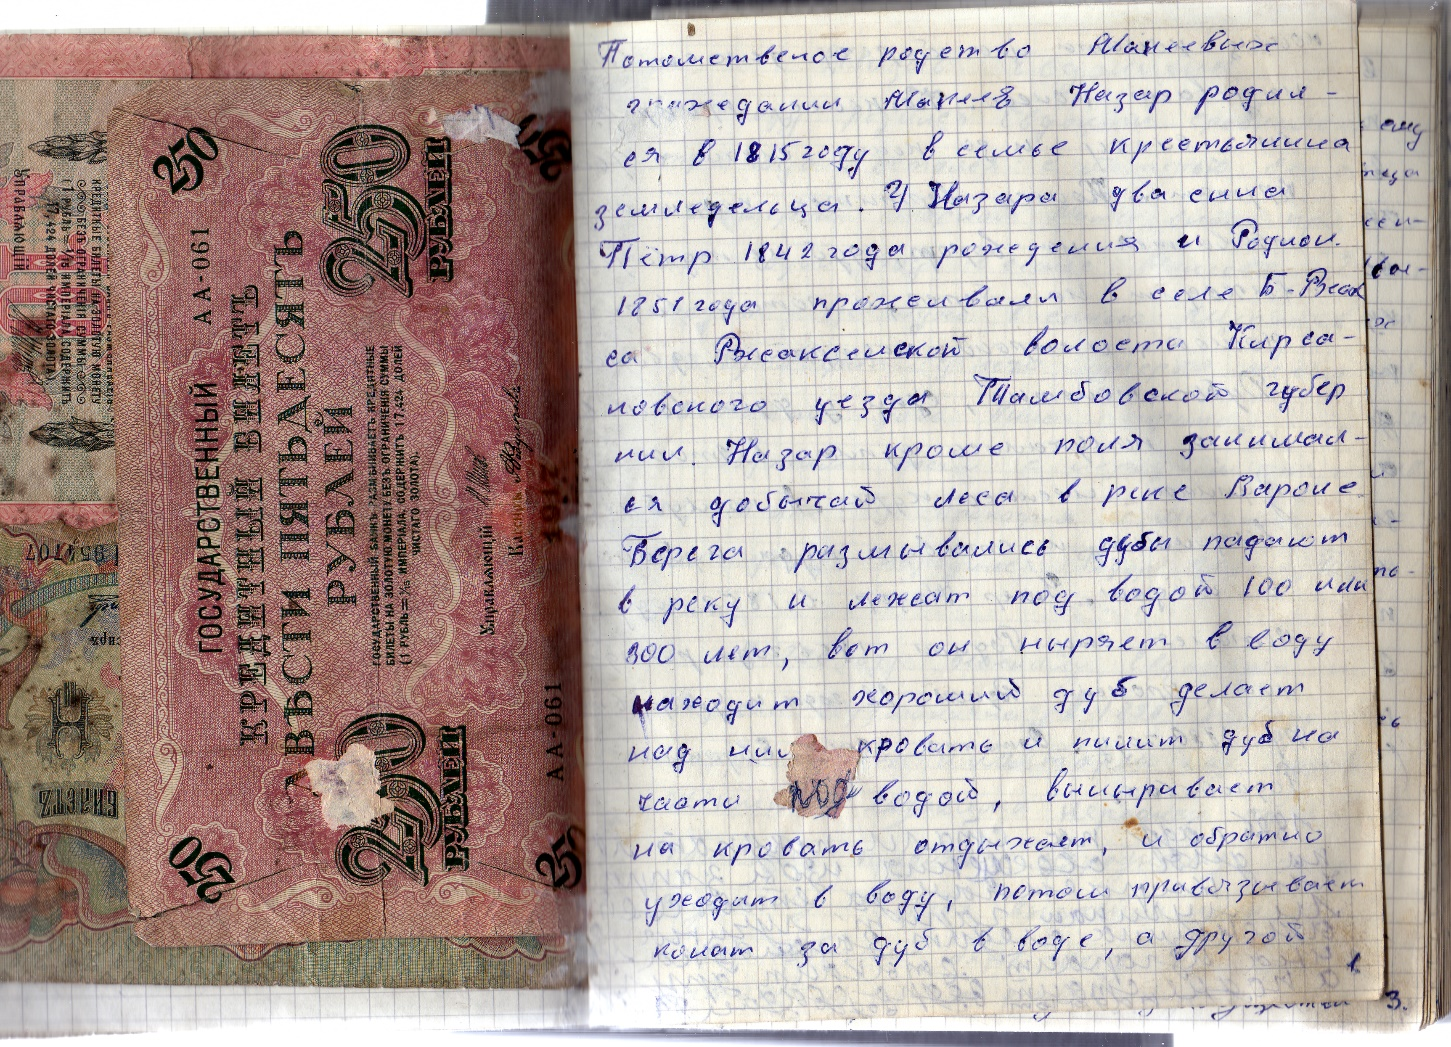 ГОСУДАРСТВЕННЫЙ
КРЕДИТНЫЙ БИЛЕТЪ
ДВѢСТИ ПЯТЬДЕСЯТЪ
РУБЛЕЙ
ГОСУДАРСТВЕННЫЙ БАНКЪ РАЗМѢНИВАЕТЪ КРЕДИТНЫЕ
БИЛЕТЫ НА ЗОЛОТУЮ МОНЕТУ БЕЗЪ ОГРАНИЧЕНІЯ СУММЫ
(1 РУБЛЬ = 1/15 ИМПЕРІАЛА, СОДЕРЖИТЪ 17,424 ДОЛЕЙ
ЧИСТАГО ЗОЛОТА).
Управляющій
Кассиръ
250 РУБЛЕЙ
250 РУБЛЕЙ
АА-061
АА-061
250
250
250
БИЛЕТЪ
Управляющій
Потомственое родство Макеевых
гражеданин Макеев Назар родил-
ся в 1815 году в семье крестьянина
земледельца. У Назара два сына
Пётр 1842 года рожедения и Родион.
1851 года прожевали в селе Б-Ржак
са Ржаксенской волости Кирса-
новского уезда Тамбовской губер
нии. Назар кроме поля занимал-
ся добычай леса в реке Вароне
Берега размывались дубы падают
в реку и лежат под водой 100 или
300 лет, вот он ныряет в воду
находит хороший дуб делает
над ним кровать и пилит дуб на
части под водой, выныривает
на кровать отдыхает, и обратно
уходит в воду, потом привязывает
канат за дуб в воде, а другой
1
3.